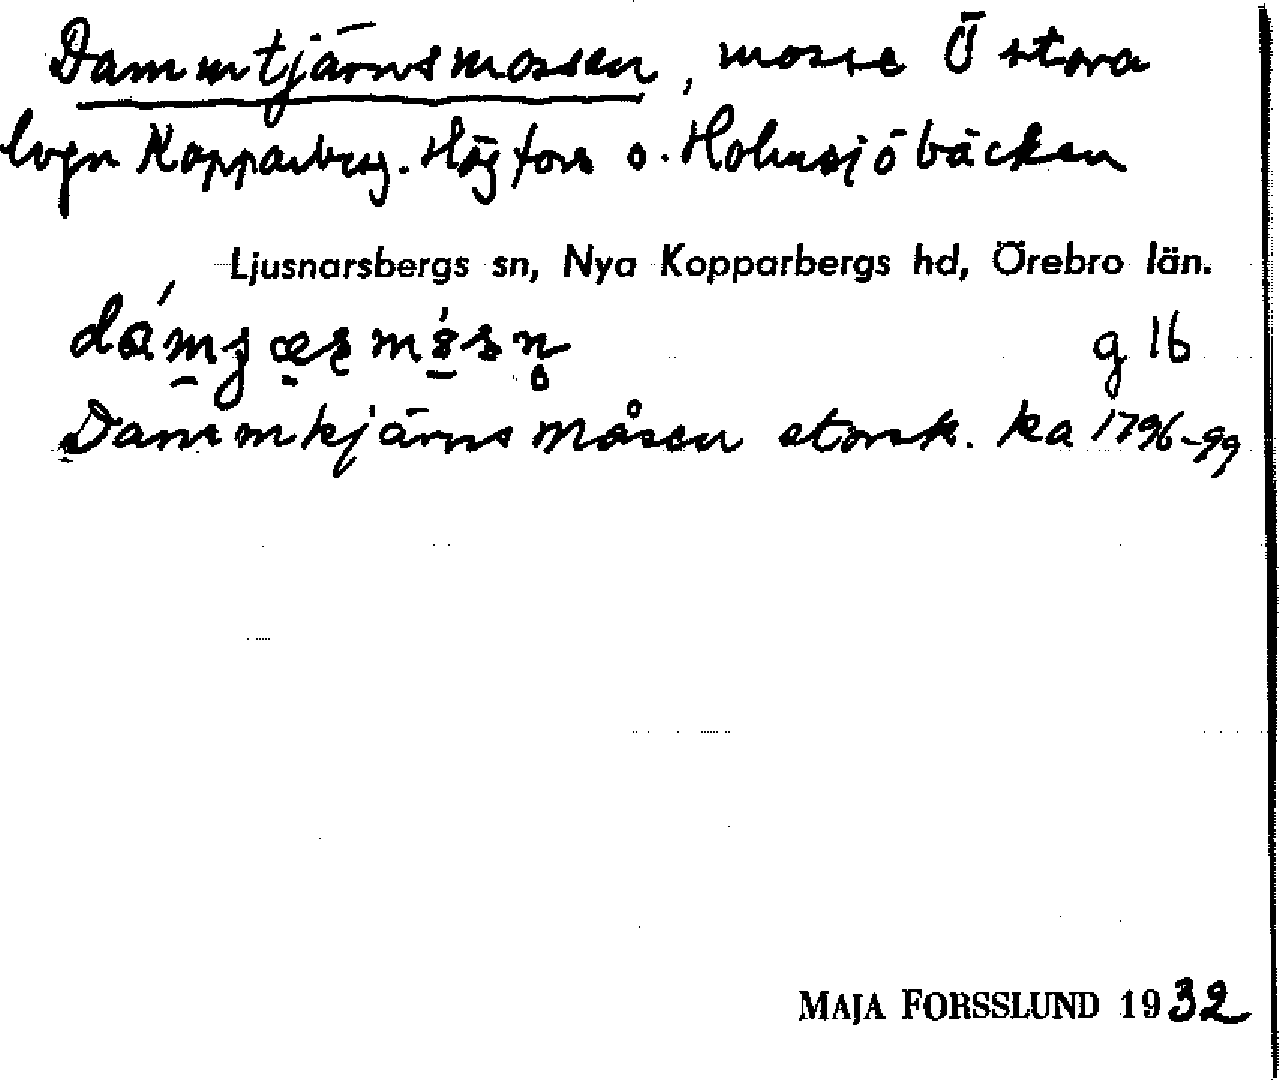 Dammtjärnsmossen, mosse Ö stora
lvgn Kopparberg-Högfors o. Holmsjöbäcken
Ljusnarsbergs sn, Nya Kopparbergs hd, Örebro län.
g 16
Dammkjärns Måsen storsk. ka 1796-99
MAJA FORSSLUND 1932